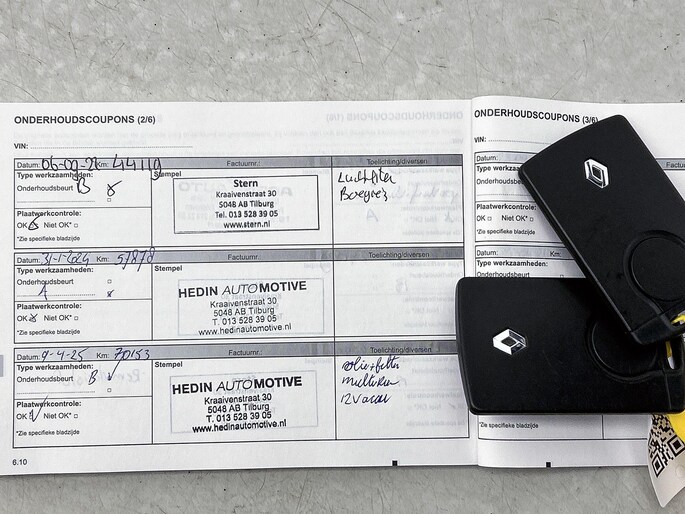 ONDERHOUDSCOUPONS (2/6)
VIN:
Datum: Km: 44110 Factuurnr.: Toelichting/diversen
Type werkzaamheden:
Onderhoudsbeurt B x
Plaatwerkcontrole:
OK Niet OK*
*Zie specifieke bladzijde
Stempel
Stern
Kraaivenstraat 30
5048 AB Tilburg
Tel. 013 528 39 05
www.stern.nl
Luchtfilter
Datum: 31-1-2024 Km: 57878
Type werkzaamheden:
Onderhoudsbeurt
A x
Plaatwerkcontrole:
OK x Niet OK*
*Zie specifieke bladzijde
Stempel
HEDIN AUTOMOTIVE
Kraaivenstraat 30
5048 AB Tilburg
T. 013 528 39 05
www.hedinautomotive.nl
Datum: 9-4-25 Km: 70153 Factuurnr.: Toelichting/diversen
Type werkzaamheden:
Onderhoudsbeurt B
Plaatwerkcontrole:
OK Niet OK*
*Zie specifieke bladzijde
Stempel
HEDIN AUTOMOTIVE
Kraaivenstraat 30
5048 AB Tilburg
T. 013 528 39 05
www.hedinautomotive.nl
olie+filter
6.10
ONDERHOUDSCOUPONS (3/6)
VIN:
Datum: Km:
Type werkzaamheden:
Onderhoudsbeurt
Plaatwerkcontrole:
OK Niet OK*
*Zie specifieke bladzijde
Datum: Km:
Type werkzaamheden:
Onderhoudsbeurt
*Zie specifieke bladzijde